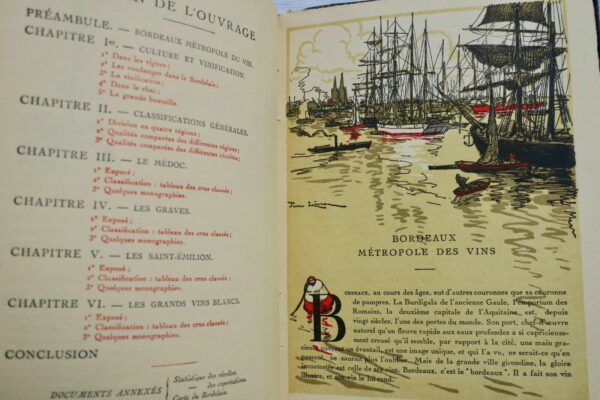 DE L'OUVRAGE
PRÉAMBULE. — BORDEAUX MÉTROPOLE DU VIN.
CHAPITRE Ier. — CULTURE ET VINIFICATION.
1° Dans les vignes;
2° Les vendanges dans le Bordelais;
3° La vinification;
4° Dans le chai;
5° La grande bouteille.
CHAPITRE II. — CLASSIFICATIONS GÉNÉRALES.
1° Division en quatre régions;
2° Qualités comparées des différentes régions;
3° Qualités comparées des différentes récoltes;
CHAPITRE III. — LE MÉDOC.
1° Exposé;
2° Classification : tableau des crus classés;
3° Quelques monographies.
CHAPITRE IV. — LES GRAVES.
1° Exposé;
2° Classification : tableau des crus classés;
3° Quelques monographies.
CHAPITRE V. — LES SAINT-ÉMILION.
1° Exposé;
2° Classification : tableau des crus classés;
3° Quelques monographies.
CHAPITRE VI. — LES GRANDS VINS BLANCS.
1° Exposé;
2° Classification : tableau des crus classés;
3° Quelques monographies.
CONCLUSION
DOCUMENTS ANNEXÉS
Statistique des récoltes
— des exportations.
Carte du Bordelais
BORDEAUX
MÉTROPOLE DES VINS
BORDEAUX, au cours des âges, eut d'autres couronnes que sa couronne
de pampres. La Burdigala de l'ancienne Gaule, l'emporium des
Romains, la deuxième capitale de l'Aquitaine est, depuis
vingt siècles, l'une des portes du monde. Son port, chef-d'œuvre
naturel qu'un fleuve rapide aux eaux profondes a si capricieuse-
ment creusé qu'il semble, par rapport à la cité, une main gra-
cieuse ouvrant un éventail, est une image unique, et qui l'a vu, ne serait-ce qu'en
passant, ne saurait plus l'oublier. Mais de la grande ville girondine, la gloire
incontestée est celle de ses vins. Bordeaux, c'est le "bordeaux". Il a fait son vin
illustre, et son vin le lui rend.